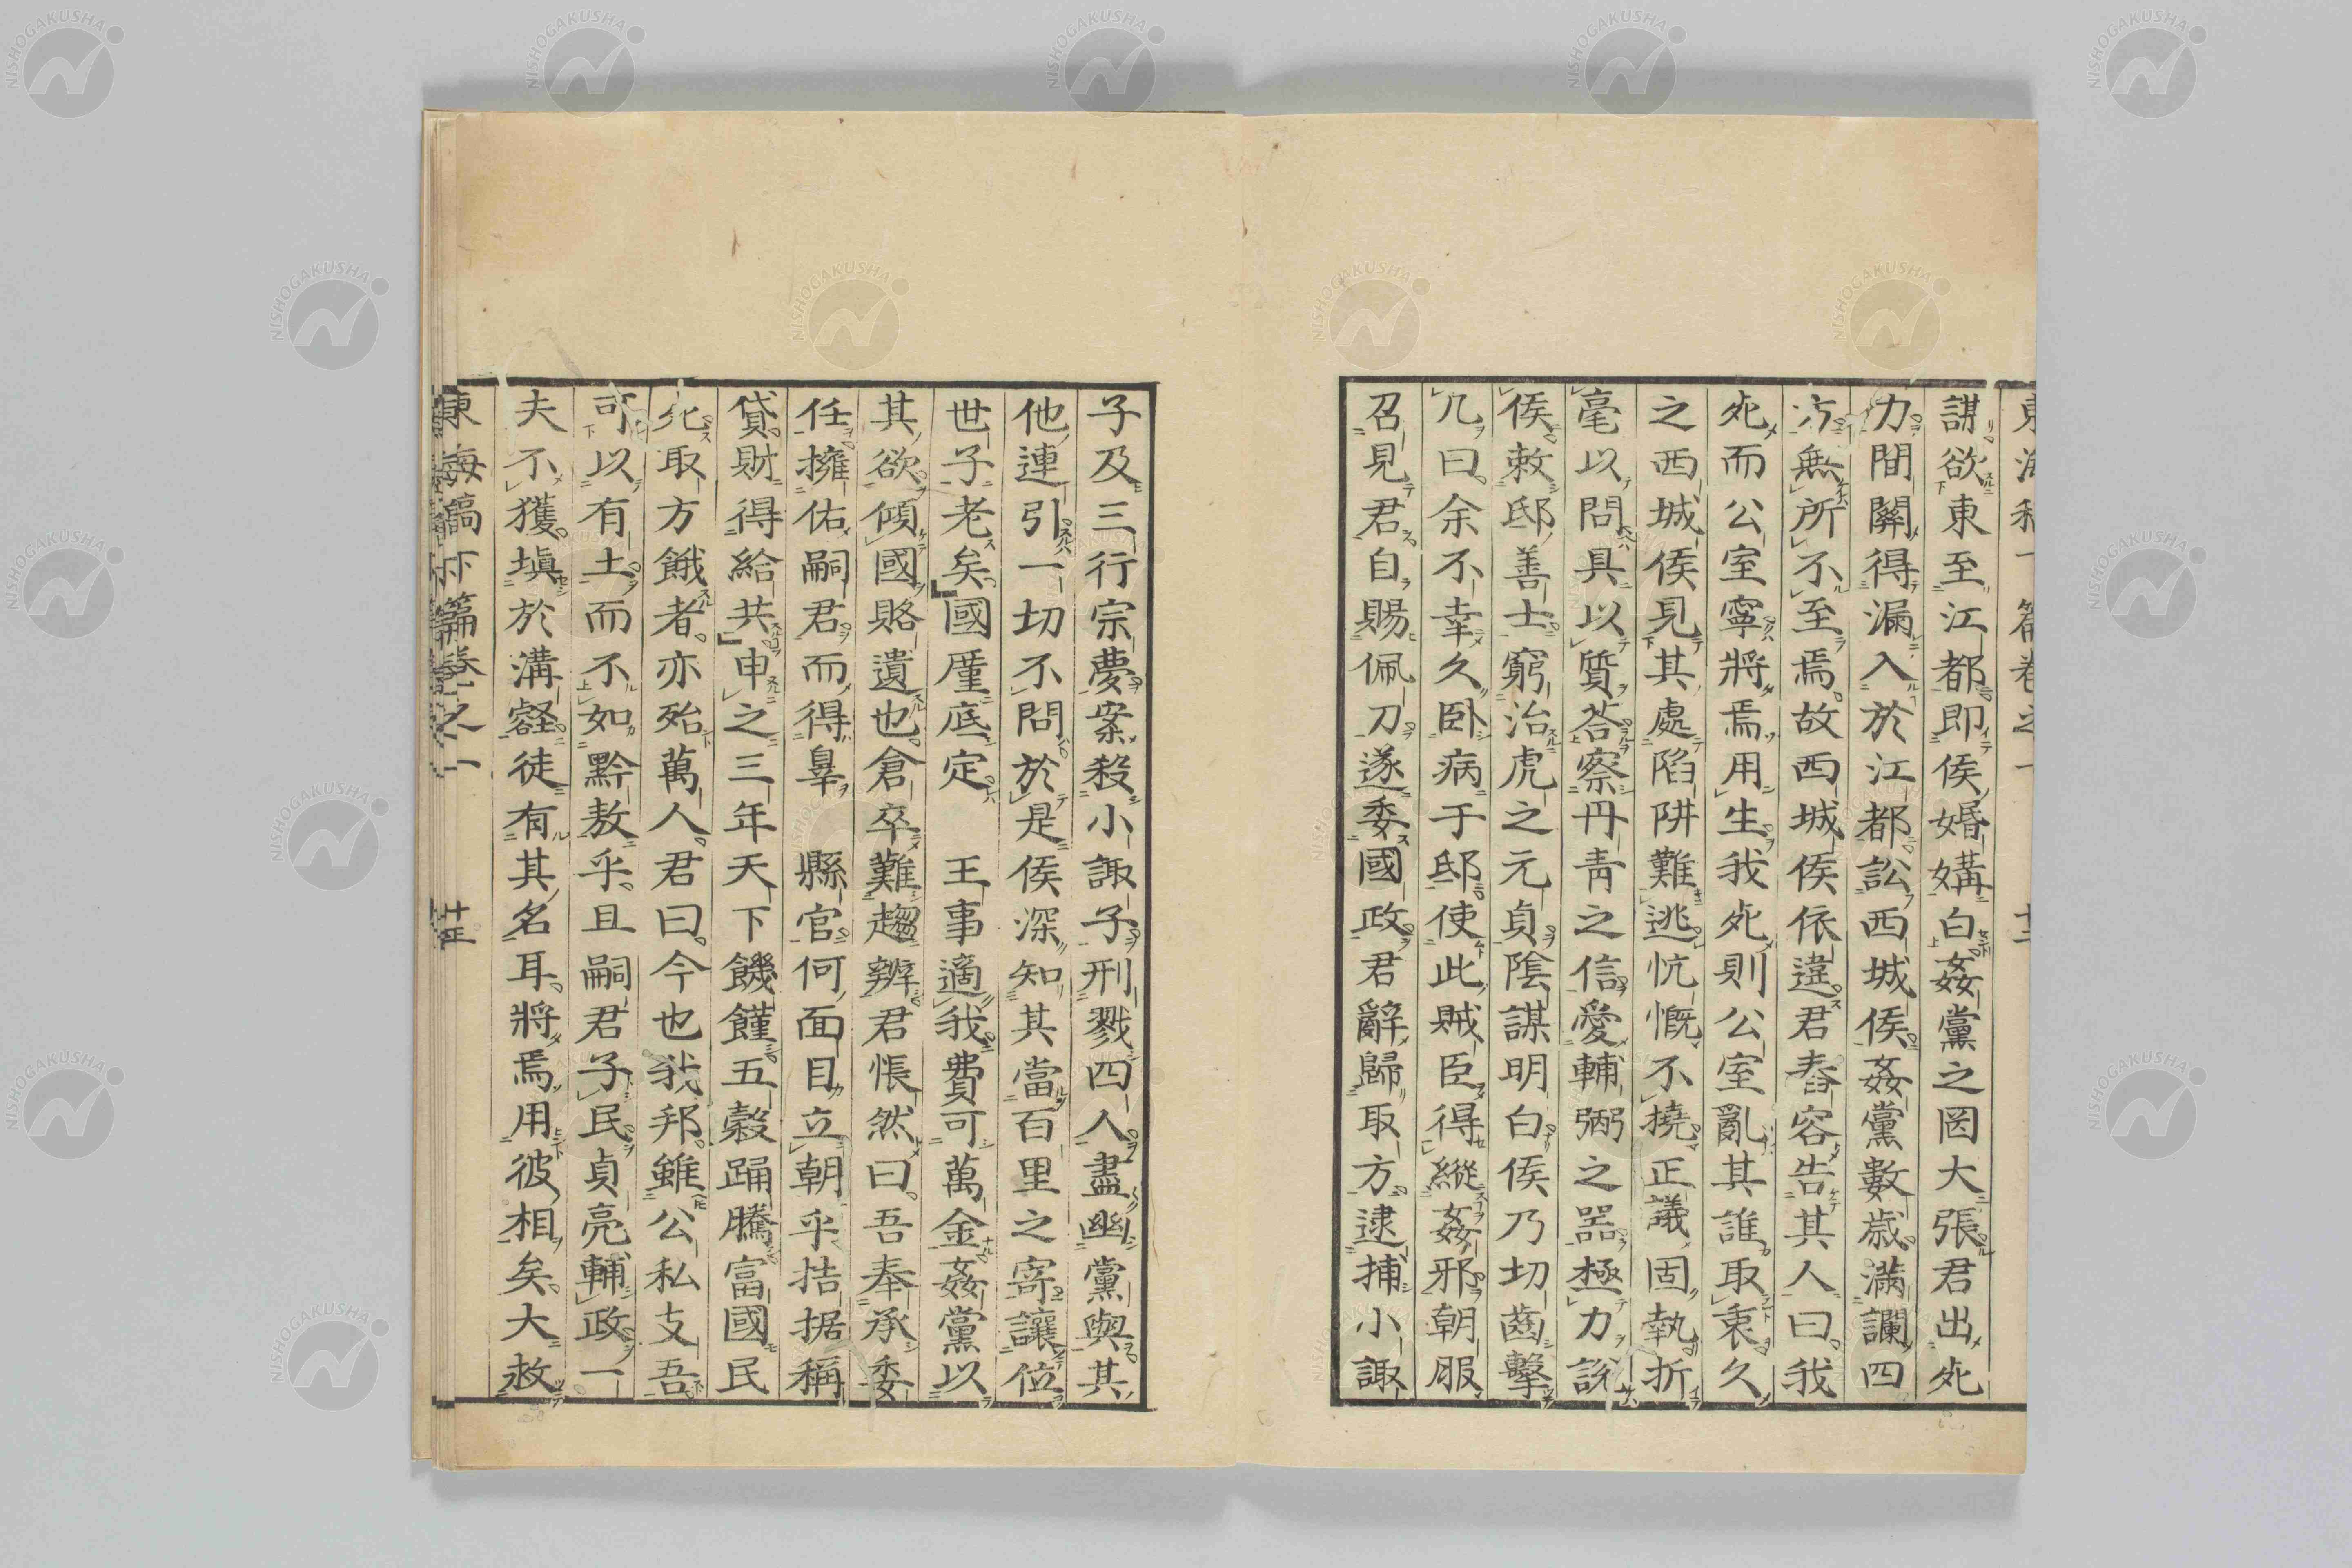 謀欲東至江都即侯婚媾白姦黨之罔大張君出死
力間關得漏入於江都訟西城侯姦黨數歳滿讕四
方無所不至焉故西城侯依違君舂容告其人曰我
死而公室寧將焉用生我死則公室亂其誰取衷久
之西城侯見其處陷阱難逃忼慨不撓正議固執折
毫以問具以質荅察丹青之信愛輔弼之器極力說
侯敕邸善士窮治虎之元貞陰謀明白侯乃切齒擊
几曰余不幸久卧病于邸使此賊臣得縱姦邪朝服
召見君自賜佩刀遂委國政君辭歸取方逮捕小諏
子及三行宗夢案殺小諏子刑戮四人盡幽黨與其
他連引一切不問於是侯深知其當百里之寄讓位
世子老矣國厪底定　王事適我費可萬金姦黨以
其欲傾國賂遺也倉卒難趨辨君悵然曰吾奉承委
任擁佑嗣君而得辠　縣官何面目立朝乎拮据稱
貸財得給共申之三年天下饑饉五穀踊騰富國民
死取方餓者亦殆萬人君曰今也我邦雖公私支吾
可以有土而不如黔敖乎且嗣君子民貞亮輔政一
夫不獲塡於溝壑徒有其名耳將焉用彼相矣大赦
東海稿亦篇卷之一